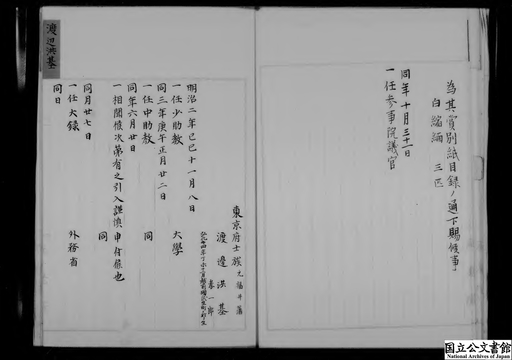 為其賞別紙目録ノ通下賜候事
白縮緬 三匹
同年十月三十一日
一任参事院議官
渡辺洪基
東京府士族 元福井藩
渡邉洪基
明治二年己巳十一月八日
一任少助教 大學
同三年庚午正月廿二日
一任中助教 同
同年六月廿日
一相聞候次第有之引入謹慎申付候也 同
同月廿七日
一任大録 外務省
同日
国立公文書館
National Archives of Japan